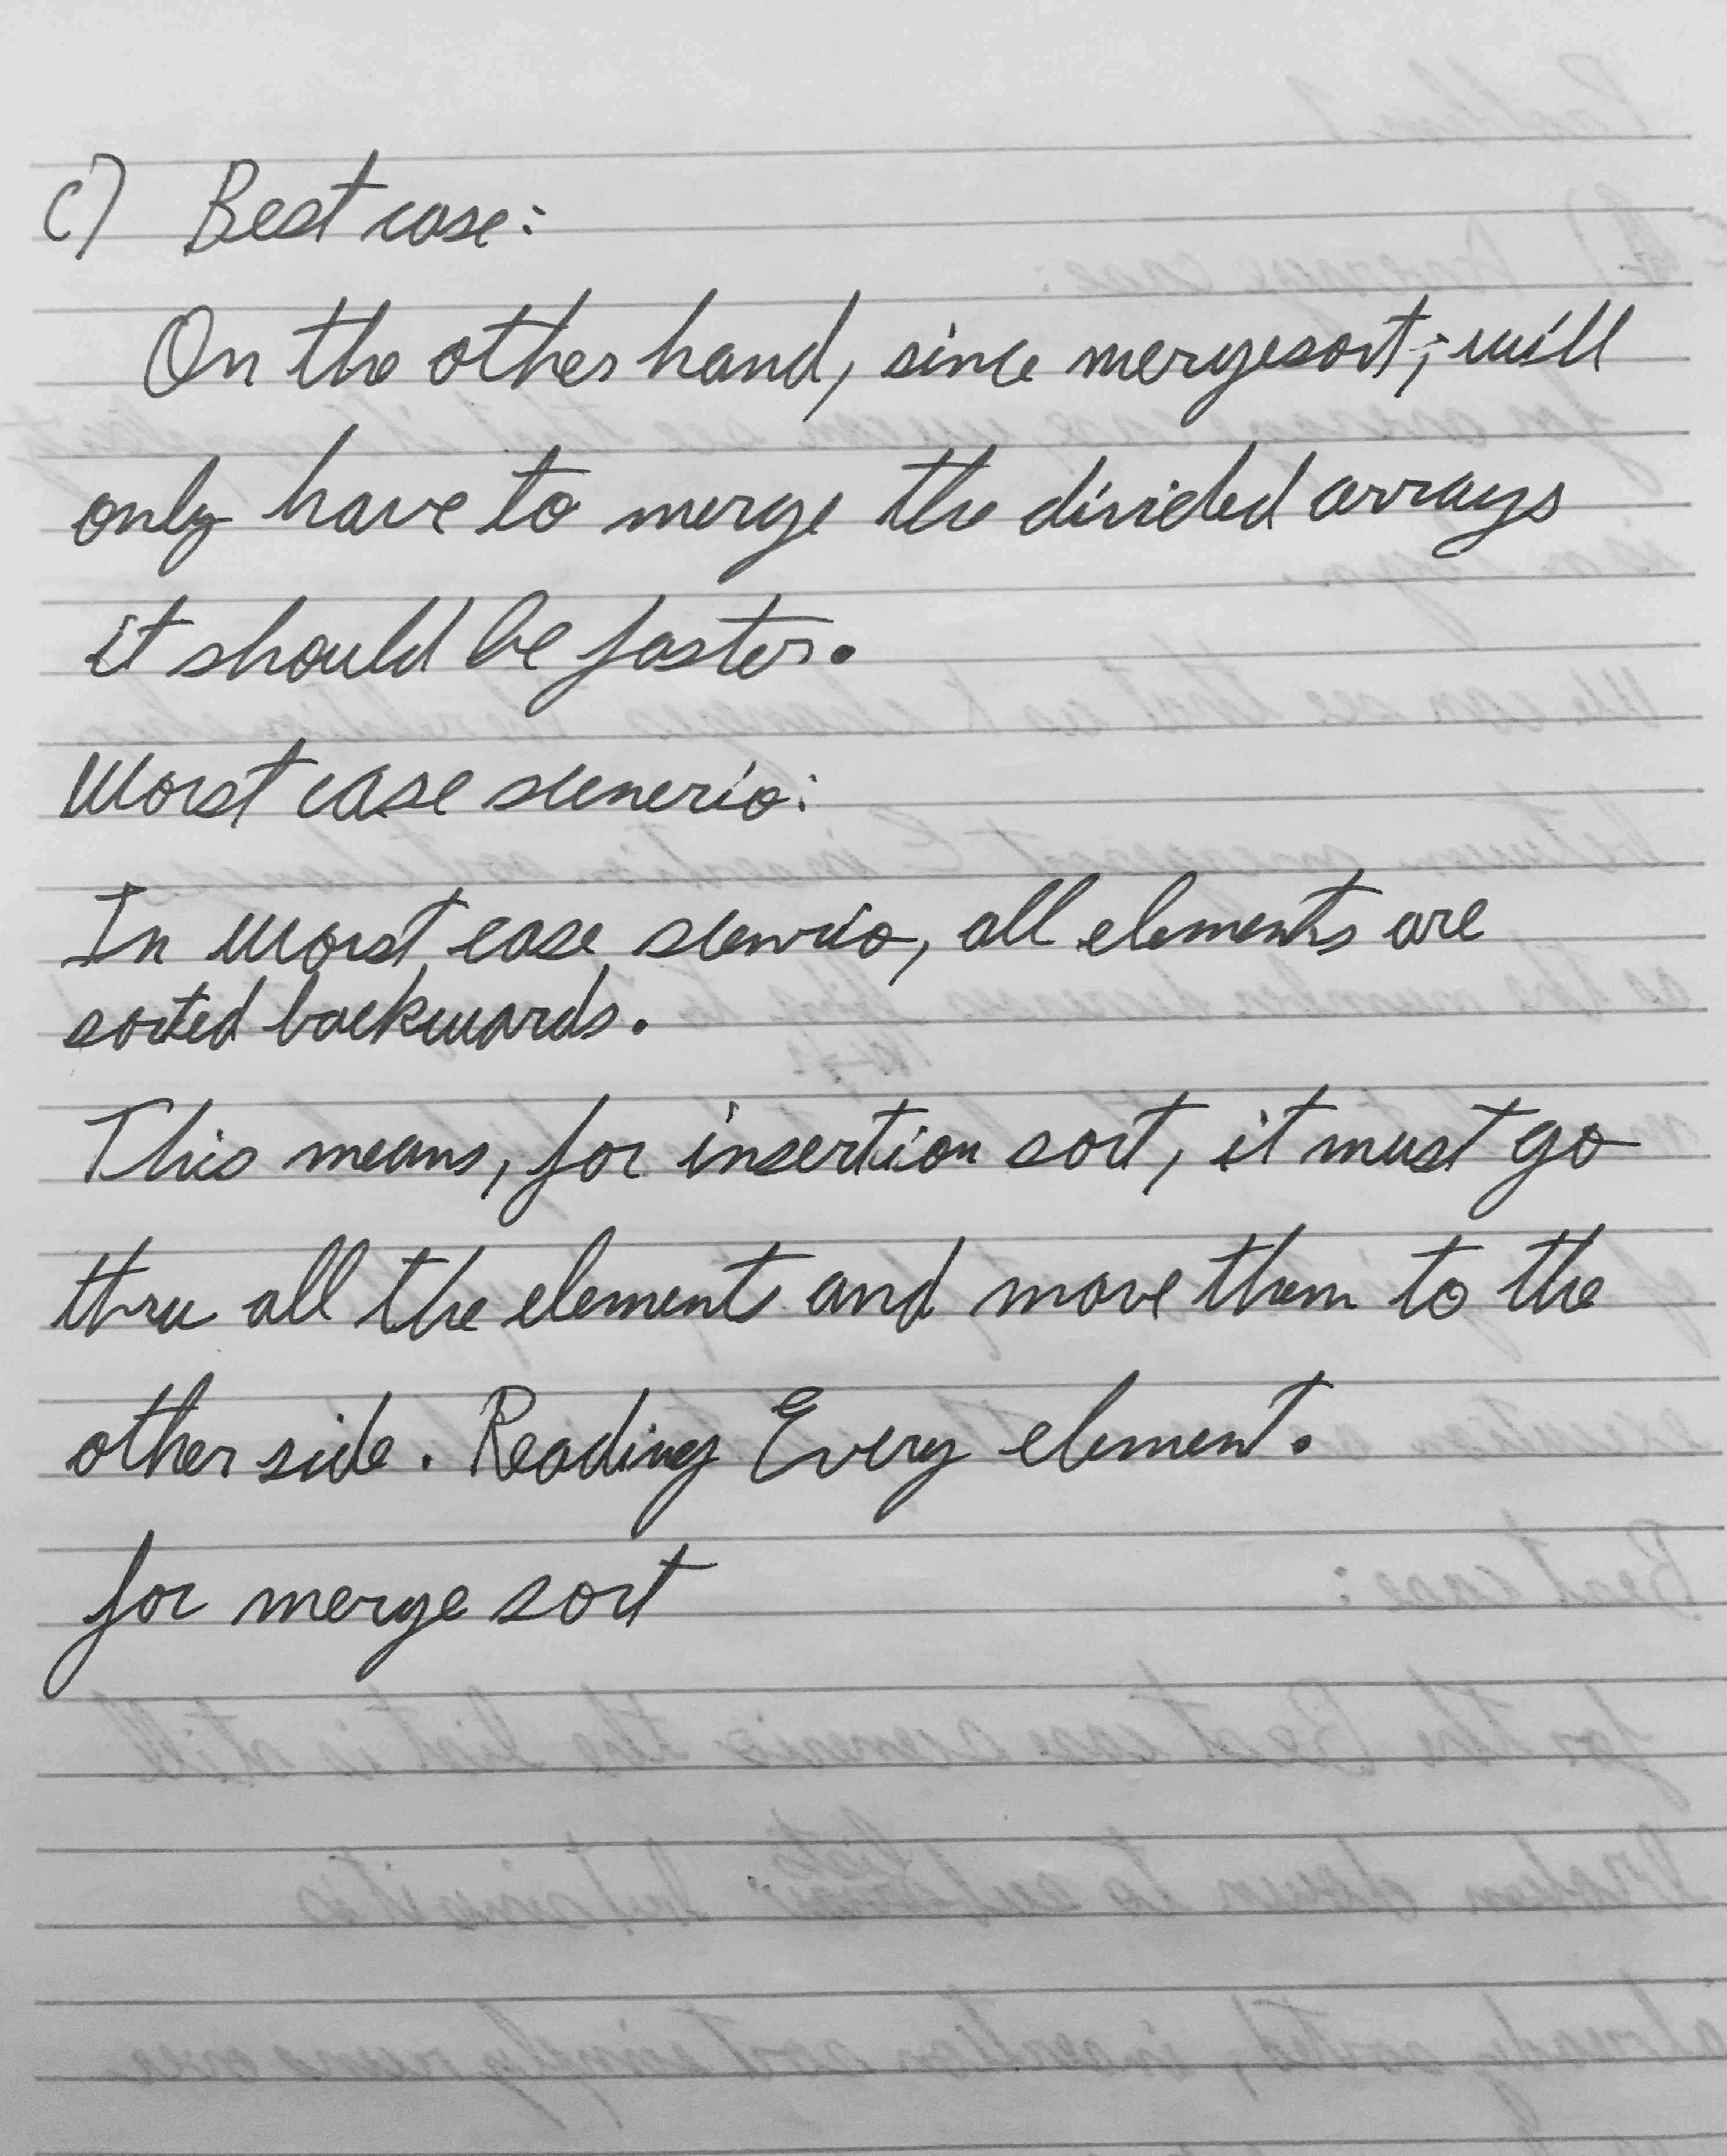 c) Best case:
On the other hand, since mergesort, will
only have to merge the divided arrays
it should be faster.
Worst case scenerio:
In worst case scenario, all elements are
sorted backwards.
This means, for insertion sort, it must go
thru all the elements and move them to the
other side. Reading Every element.
for merge sort